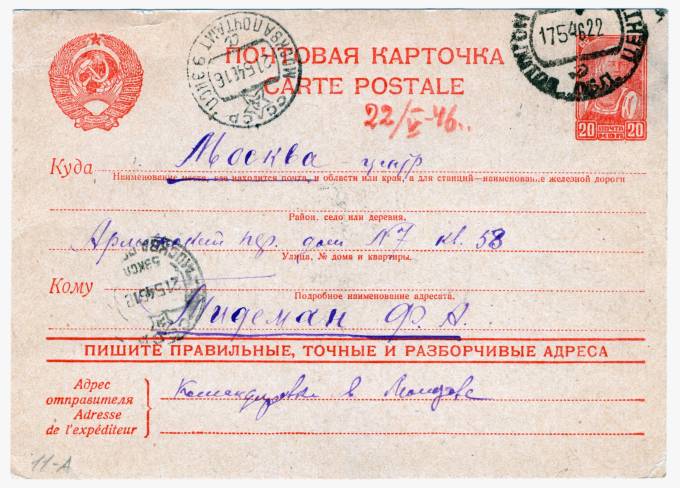 ПОЧТОВАЯ КАРТОЧКА
CARTE POSTALE
17 5 46 22
20 ПОЧТА 20
22/V-46..
Куда Москва центр
Наименование места, где находится почта, и области или края, а для станций—наименование железной дороги
Район, село или деревня.
пер. дом N7 кв. 58
Улица, № дома и квартиры.
Кому
Подробное наименование адресата.
Мидеман Ф. А.
ПИШИТЕ ПРАВИЛЬНЫЕ, ТОЧНЫЕ И РАЗБОРЧИВЫЕ АДРЕСА
Адрес
отправителя
Adresse
de l'expéditeur
Командировка в
11-А